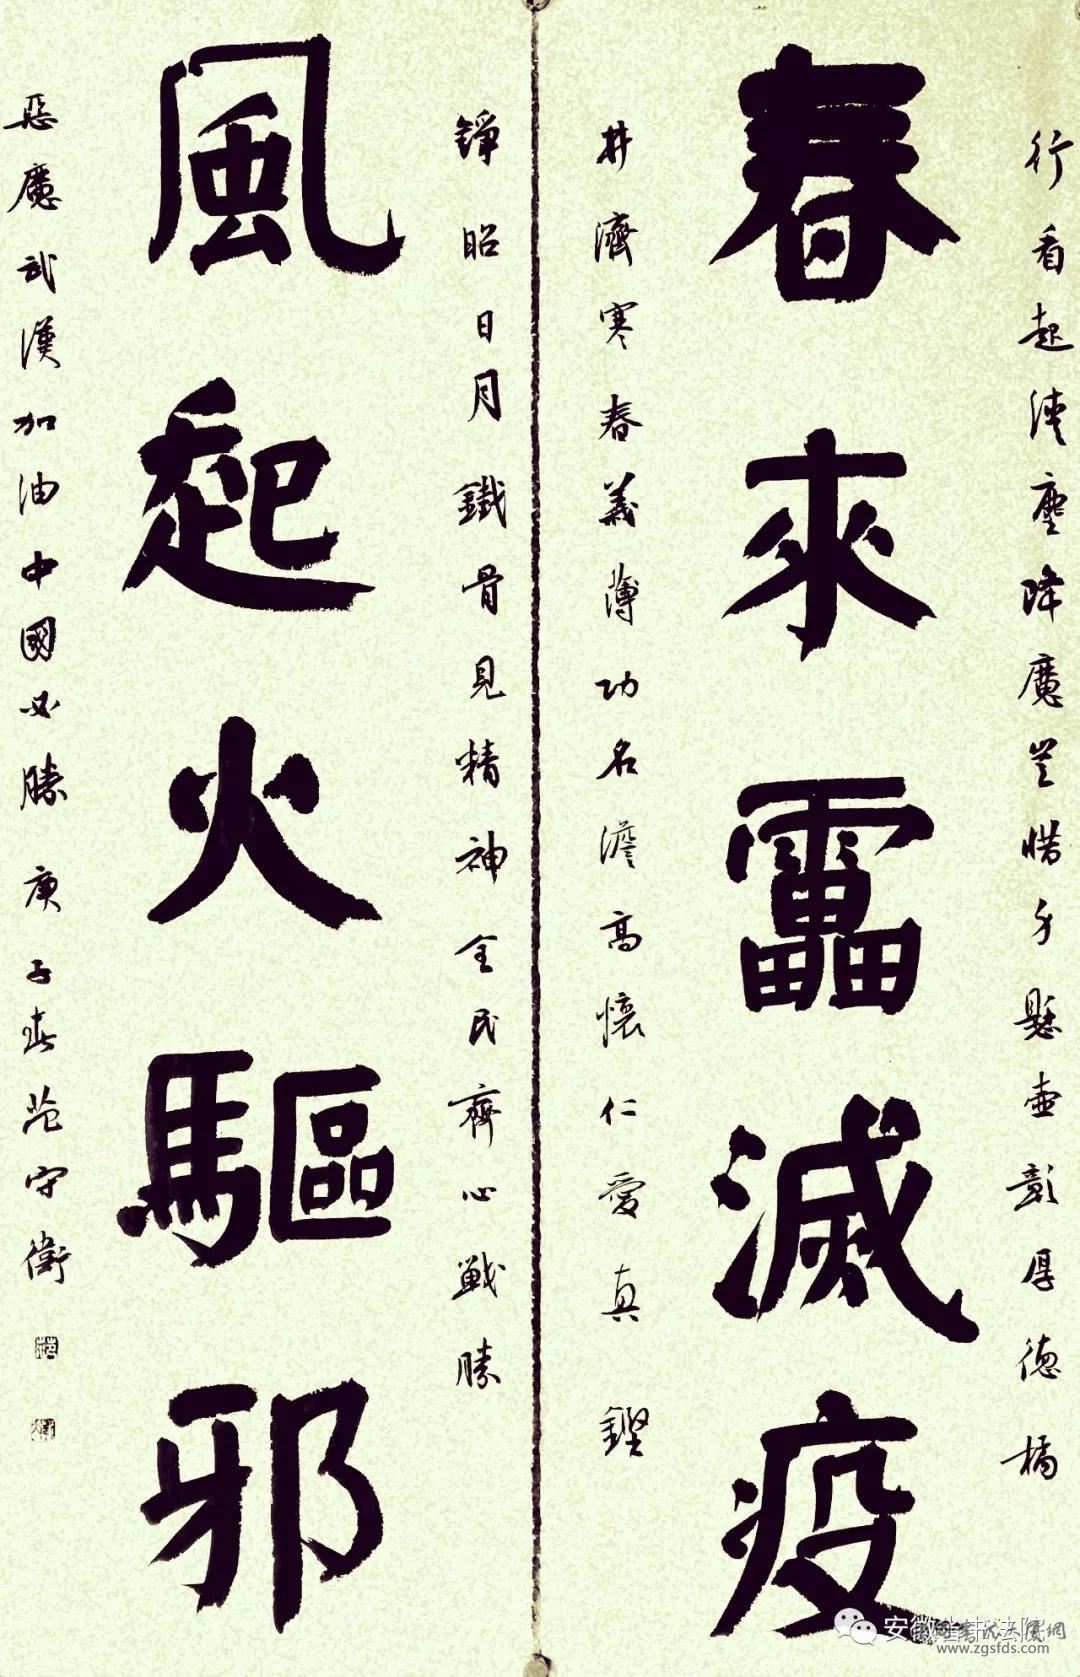 行看起塵降魔豈惜身懸壺彰厚德橘
春來靁滅疫
井濟寒春義薄功名澹高懷仁愛真鏗
錚昭日月鐵骨見精神全民齊心戰勝
風起火驅邪
惡魔武漢加油中國必勝庚子春范守衛
www.zgsfds.com